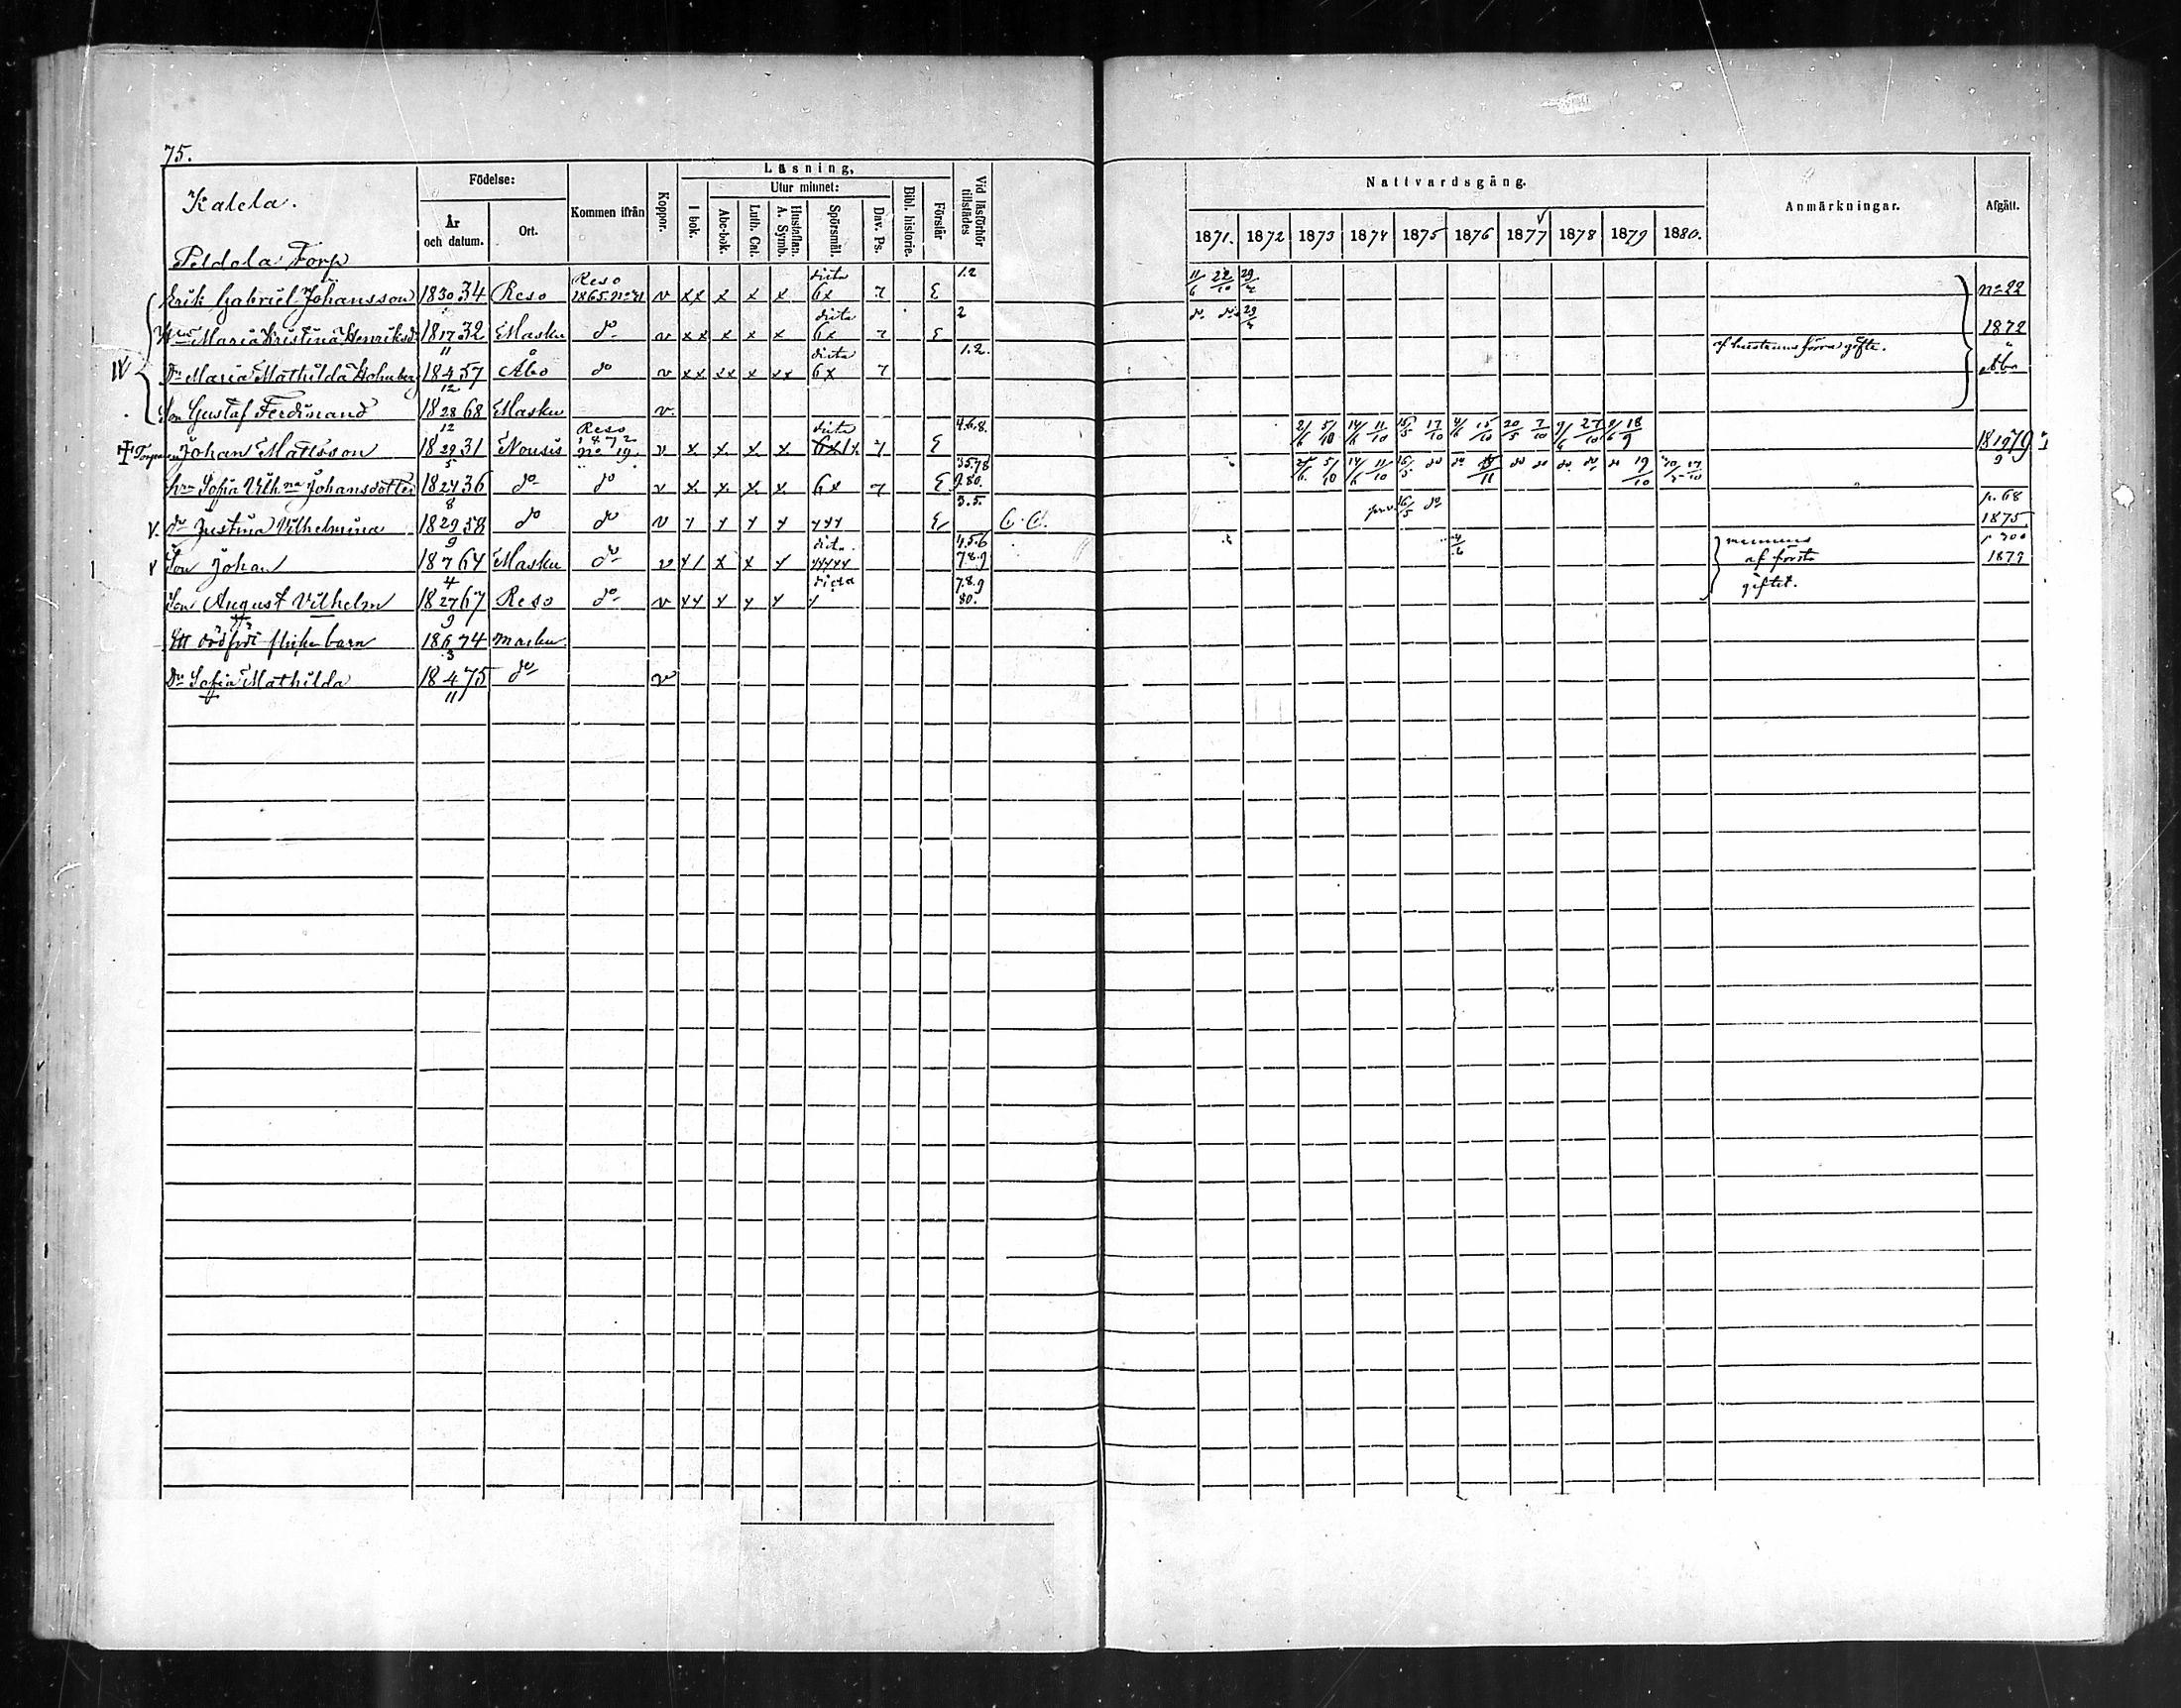 75.
Kalela.
Peldola Torp
Födelse:
År
och datum.
Ort.
Kommen ifrån
Koppor.
Läsning,
I bok.
Utur minnet:
Abc-bok.
Luth. Cat.
Hustaflan.
A. Symb.
Spörsmål.
Dav. Ps.
Bibl. historie.
Förstår
Vid läsförhör
tillstädes
Nattvardsgång.
1871. 1872 1873 1874 1875 1876 1877 1878 1879 1880.
Anmärkningar.
Afgått.
Erik Gabriel Johansson 18 30 34 Reso Reso 1865 v xx x x x dicta 6x 7 E 1.2 11/6 22/10 29/ n:o 22
Maria Kristina Henriksd 18 17/11 32 Masku do v xx x x x dicta 6x 7 E 2 do 29/ 1872
IV Dr Maria Mathilda Holmberg 18 4/12 57 Åbo do v xx xx x xx dicta 6x 7 1.2. af hustruns förra gifte. Åbo
Son Gustaf Ferdinand 18 28/12 68 Masku v.
Johan Mattsson 18 29/5 31 Nousis Reso 1872 no 19 v x x x x dicta 7 E 4.6.8. 2/6 5/10 14/6 11/10 16/5 17/10 4/6 15/10 20/5 7/10 9/6 27/10 18/9 18 19/9 79
hru Sofia Vilh:na Johansdotter 18 24/8 36 do do v x. x. x. x. 6x 7 E 35.78 9.80. 5/10 14/6 11/10 16/5 do do 15/11 do do do do do 19/10 17/10
v. dr Justina Vilhelmina 18 29/9 58 do do v y y y y yyy E 3.5. C. C. 16/5 do p. 68 1875
v Son Johan 18 7/4 64 Masku do v x x y dicta yyyyy 4.5.6 7.8.9 4/6 mannens af första giftet. 1877
Son August Vilhelm 18 27/9 67 Reso do v yy y y y dicta y 7.8.9 80.
Ett dödfödt flicke barn 18 6/3 74 Masku.
Dr Sofia Mathilda 18 4/11 75 do v